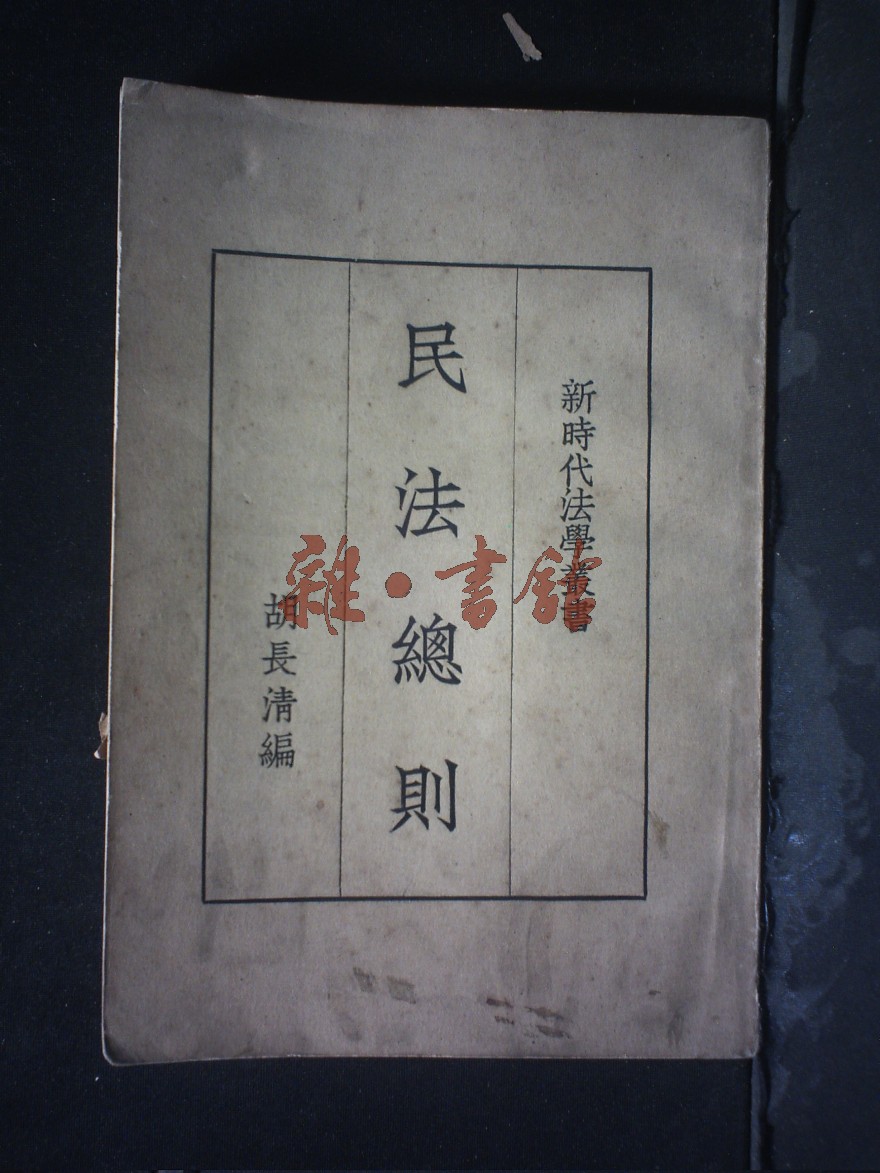 新時代法學叢書
民法總則
胡長清編
雜·書館